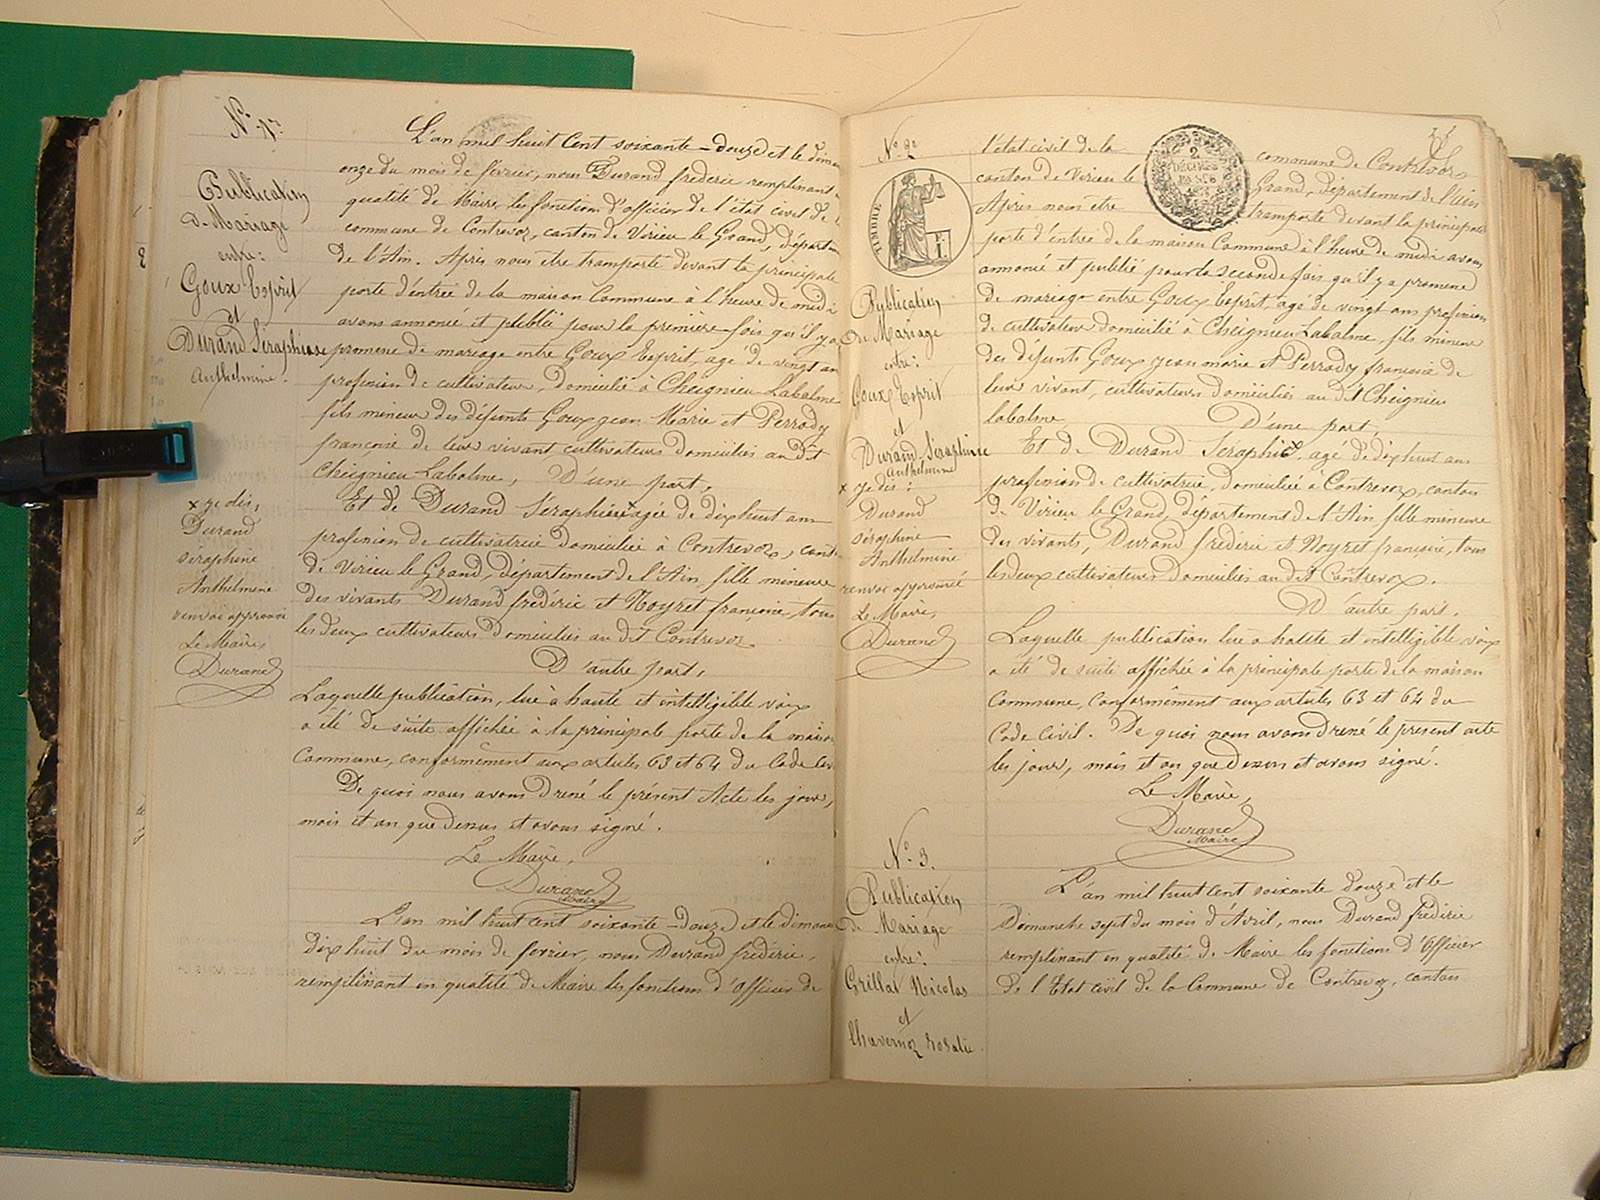 N° 1er
Publication
de Mariage
entre:
Goux Esprit
et
Durand Séraphine
Anthelmine.
x je dis,
Durand
séraphine
Anthelmine
renvoi approuvé
Le Maire,
Durand
L'an mil huit cent soixante-douze et le diman
onze du mois de février, nous Durand fréderic remplissant
qualité de Maire les fonctions d'officier de l'état civil de
commune de Contrevoz, canton de Virieu le Grand, départem
de l'Ain. Après nous être transporté devant la principale
porte d'entrée de la maison Commune à l'heure de midi
avons annoncé et publié pour la première fois qu'il y a
promesse de mariage entre Goux Esprit, agé de vingt an
profession de cultivateur, domicilié à Cheignieu Labalme
fils mineur des défunts Goux jean Marie et Perrody
françoise de leur vivant cultivateurs domiciliés au dit
Cheignieu Labalme, D'une part,
Et de Durand Séraphine x agée de dix huit ans
profession de cultivatrice domiciliée à Contrevoz, cant
de Virieu le Grand, département de l'Ain, fille mineure
des vivants Durand fréderic et Noyret françoise, tous
les deux cultivateurs domiciliés au dit Contrevoz
D'autre part,
Laquelle publication, lue à haute et intelligible voix
a été de suite affichée à la principale porte de la maison
Commune, conformément aux articles 63 et 64 du Code Civ
De quoi nous avons dressé le présent Acte les jour,
mois et an que dessus et avons signé.
Le Maire,
Durand
Maire
L'an mil huit cent soixante-douze et le dimanc
dix huit du mois de fevrier, nous Durand fréderic,
remplissant en qualité de Maire les fonctions d'Officier de
N° 2
TIMBRE
2
DÉCIMES
EN SUS
Publication
de Mariage
entre:
Goux Esprit
et
Durand Séraphine
Anthelmine
x je dis:
Durand
séraphine
Anthelmine
renvoi approuvé
Le Maire,
Durand
l'état civil de la commune de Contrevoz
canton de Virieu le Grand, département de l'Ain
Après nous être transporté devant la principale
porte d'entrée de la maison Commune à l'heure de midi avons
annoncé et publié pour la seconde fois qu'il y a promesse
de mariage entre Goux Esprit, agé de vingt ans profession
de cultivateur domicilié à Cheignieu Labalme, fils mineur
des défunts Goux jean marie et Perrody françoise de
leur vivant, cultivateurs domiciliés au dit Cheignieu
labalme D'une part,
Et de Durand Séraphine x, agé de dix huit ans
profession de cultivatrice, domiciliée à Contrevoz, canton
de Virieu le Grand, département de l'Ain fille mineure
des vivants, Durand fréderic et Noyret françoise, tous
les deux cultivateurs domiciliés au dit Contrevoz.
D'autre part.
Laquelle publication lue à haute et intelligible voix
a été de suite affichée à la principale porte de la maison
commune, conformément aux articles 63 et 64 du
Code Civil. De quoi nous avons dressé le présent acte
les jour, mois et an que dessus et avons signé.
Le Maire,
Durand
Maire
N° 3.
Publication
de Mariage
entre:
Grillat Nicolas
et
Chavernoz rosalie.
L'an mil huit cent soixante douze et le
Dimanche sept du mois d'Avril, nous Durand fréderic
remplissant en qualité de Maire les fonctions d'Officier
de l'Etat civil de la Commune de Contrevoz, canton